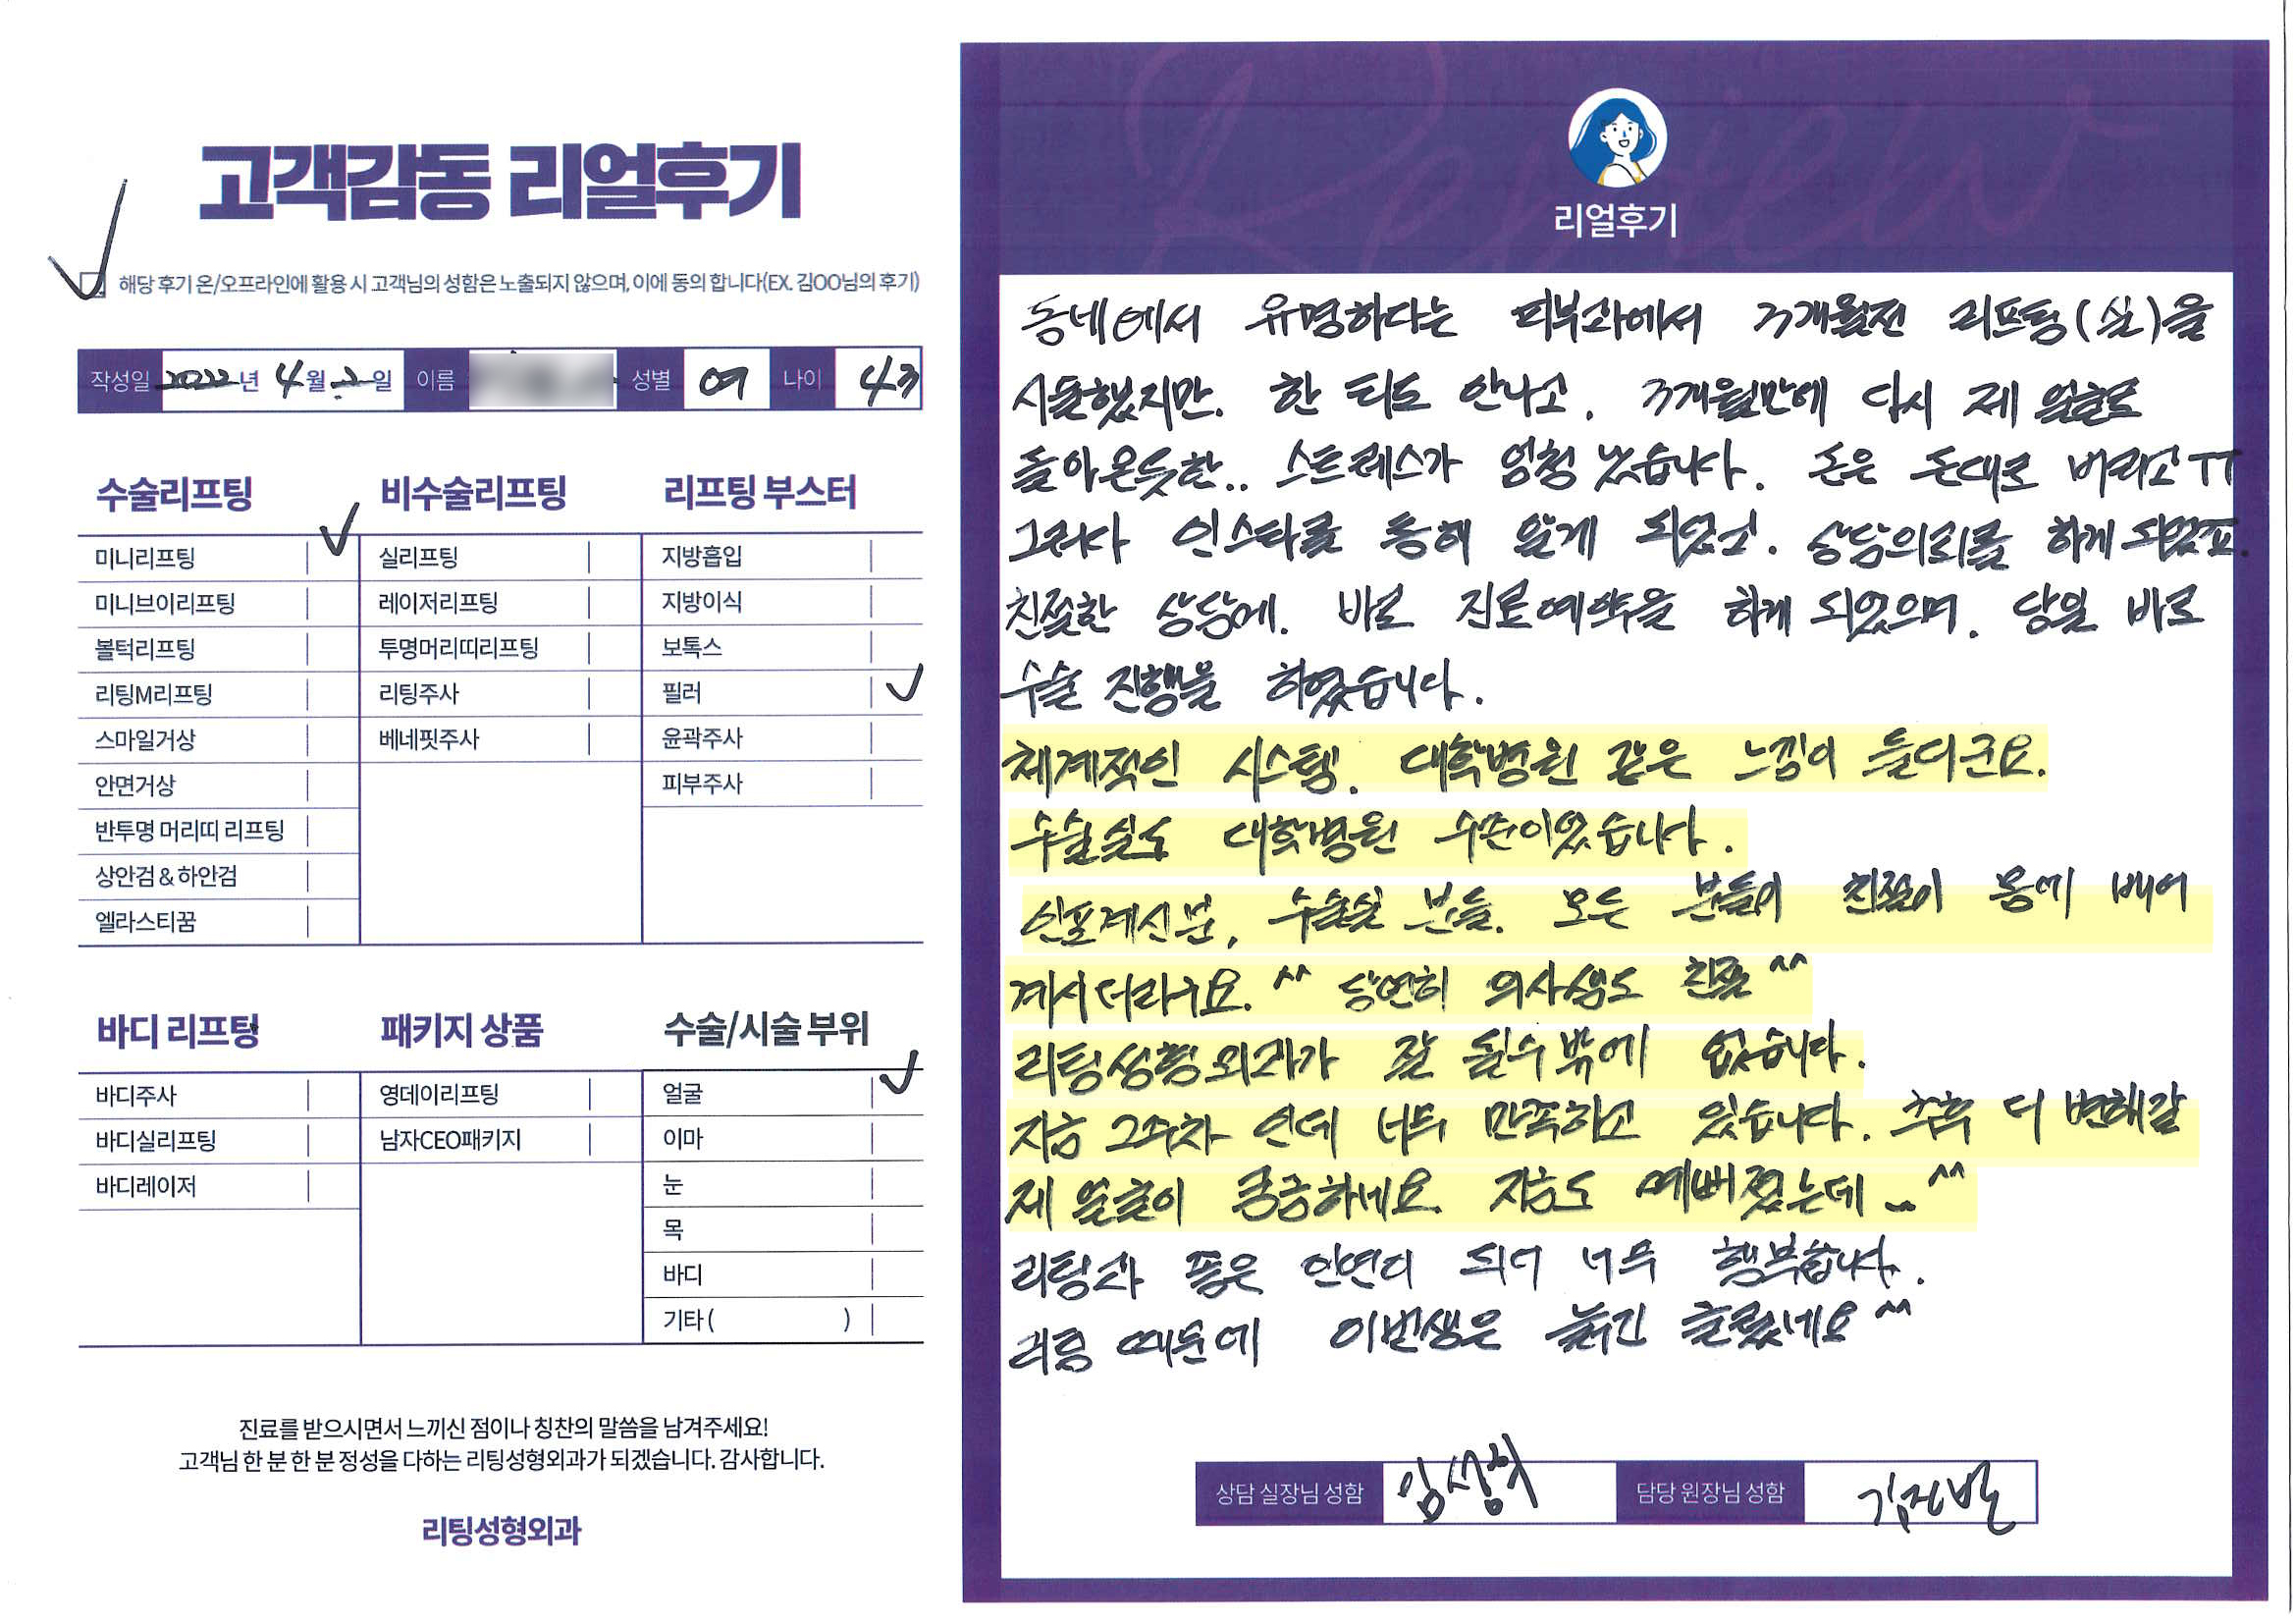 고객감동 리얼후기
해당 후기 온/오프라인에 활용 시 고객님의 성함은 노출되지 않으며, 이에 동의 합니다(EX. 김OO님의 후기)
작성일 2022년 4월 2일 이름 성별 여 나이 43
수술리프팅
미니리프팅
미니브이리프팅
볼턱리프팅
리팅M리프팅
스마일거상
안면거상
반투명 머리띠 리프팅
상안검 & 하안검
엘라스티꿈
비수술리프팅
실리프팅
레이저리프팅
투명머리띠리프팅
리팅주사
베네핏주사
리프팅 부스터
지방흡입
지방이식
보톡스
필러
윤곽주사
피부주사
바디 리프팅
바디주사
바디실리프팅
바디레이저
패키지 상품
영데이리프팅
남자CEO패키지
수술/시술 부위
얼굴
이마
눈
목
바디
기타 ( )
진료를 받으시면서 느끼신 점이나 칭찬의 말씀을 남겨주세요!
고객님 한 분 한 분 정성을 다하는 리팅성형외과가 되겠습니다. 감사합니다.
리팅성형외과
Review
리얼후기
동네에서 유명하다는 피부과에서 3개월전 리프팅(실)을
시술했지만. 한 티도 안나고. 3개월만에 다시 제 얼굴로
돌아온듯한.. 스트레스가 엄청 났습니다. 돈은 돈대로 버리고 ㅠ
그러다 인스타를 통해 알게 되었고. 상담의뢰를 하게 되었죠.
친절한 상담에. 바로 진료예약을 하게 되었으며. 당일 바로
수술 진행을 하였습니다.
체계적인 시스템. 대학병원 같은 느낌이 들더군요.
수술실도 대학병원 수준이었습니다.
인포계신분, 수술실 분들. 모든 분들이 친절이 몸에 배어
계시더라구요. ^^ 당연히 의사샘도 친절 ^^
리팅성형외과가 잘 될수 밖에 없습니다.
지금 2주차 인데 너무 만족하고 있습니다. 추후 더 변해갈
제 얼굴이 궁금하네요. 지금도 예뻐졌는데.. ^^
리팅과 좋은 인연이 되어 너무 행복합니다.
리팅 때문에 이번생은 늙긴 글렀네요 ^^
상담 실장님 성함
담당 원장님 성함